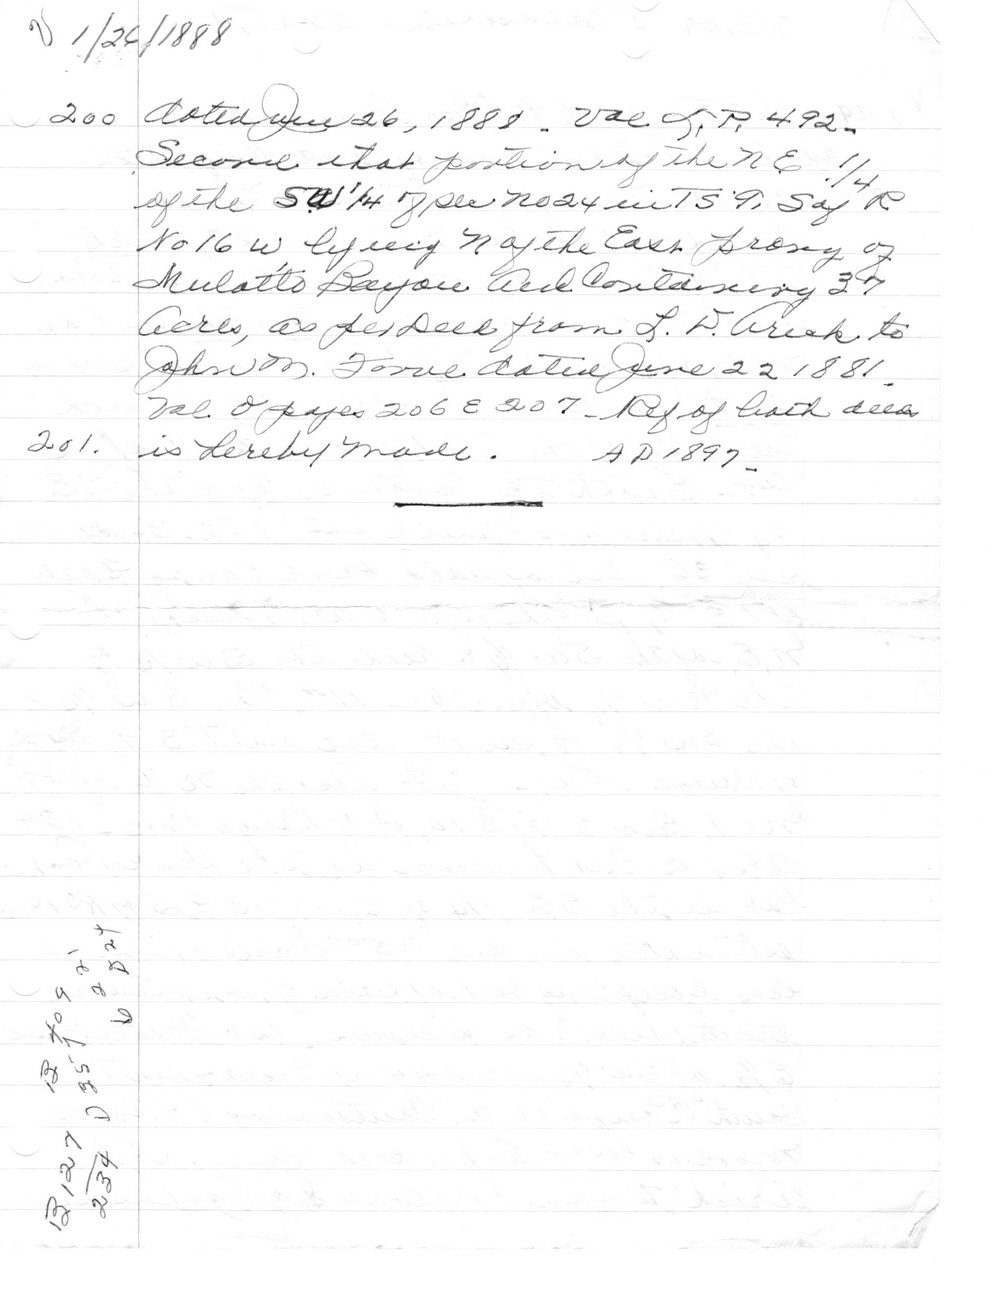 V 1/26/1888
200 dated June 26, 1888 - Vol L, P, 492-
Second that portion of the N E 1/4
of the SW 1/4 of sec No 24 in TS 9, S of R
No 16 W, lying N of the East prong of
Mulatto Bayou and Containing 37
Acres, as per Deed from L. D. Arick to
John M. dated June 22 1881-
Vol O pages 206 & 207 - Ref of both deeds
201. is hereby made. A D 1897-
B 127
234
B 409
D 357
D 24